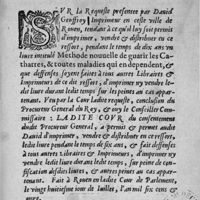 SVR la Requeste presentee par Dauid
Geuffroy Imprimeur en ceste ville de
Rouen, tendant à ce qu'il luy fust permis
d'imprimer, vendre & distribuer en ce
ressort, pendant le temps de dix ans vn
liure intitulé Methode nouuelle de guarir les Ca-
tharres, & toutes maladies qui en dependent, &
que deffenses soyent faites à tous autres Libraires &
Imprimeurs de ce dit ressort, d'imprimer ny vendre le-
dit liure durant ledit temps, sur les peines au cas appar-
tenant. Veu par la Cour ladite requeste, conclusion du
Procureur General du Roy, & ouy le Conseiller Com-
missaire : LADITE COVR du consentement
dudit Procureur General, a permis & permet audit
Dauid d'imprimer, vendre & distribuer en ce ressort,
ledit liure durant le temps de dix ans, & fait deffenses
à tous autres Libraires & Imprimeurs, d'imprimer ny
vendre ledit liure durant ledit temps, sur peine de con-
fiscation desdits liures, & autres peines au cas apparte-
nant. Fait à Rouen en ladite Cour de Parlement,
le vingt huitiesme iour de Iuillet, l'an mil six cens &